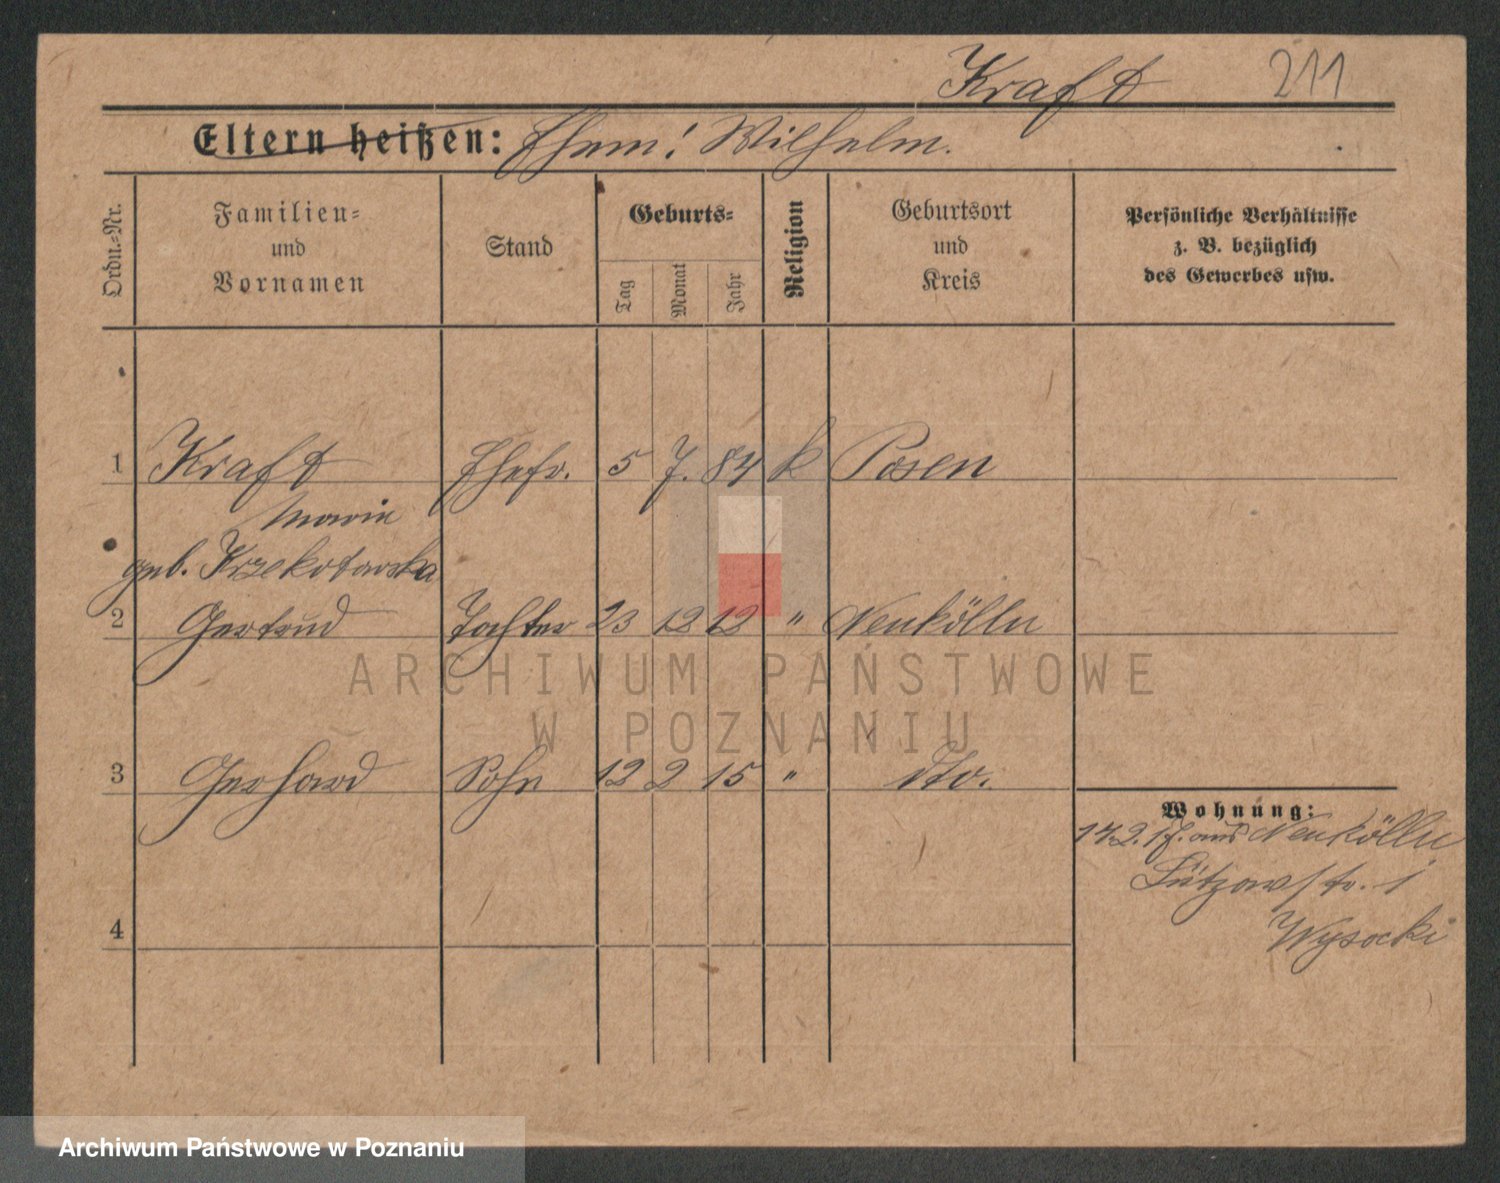 Kraft 211
Eltern heißen: Ehem! Wilhelm.
Ordn.-Nr.
Familien-
und
Vornamen
Stand
Geburts-
Tag
Monat
Jahr
Religion
Geburtsort
und
Kreis
Persönliche Verhältnisse
z. B. bezüglich
des Gewerbes usw.
1 Kraft Ehefr. 5 7. 84 k Posen
Marie
geb. Krzekotowska
2 Gertrud Tochter 23 12 12 " Neukölln
3 Gerhard Sohn 12 2 15 " dto.
Wohnung:
17.2.17. aus Neukölln
Lützowstr. 1
Wysocki
4
ARCHIWUM PAŃSTWOWE
W POZNANIU
Archiwum Państwowe w Poznaniu